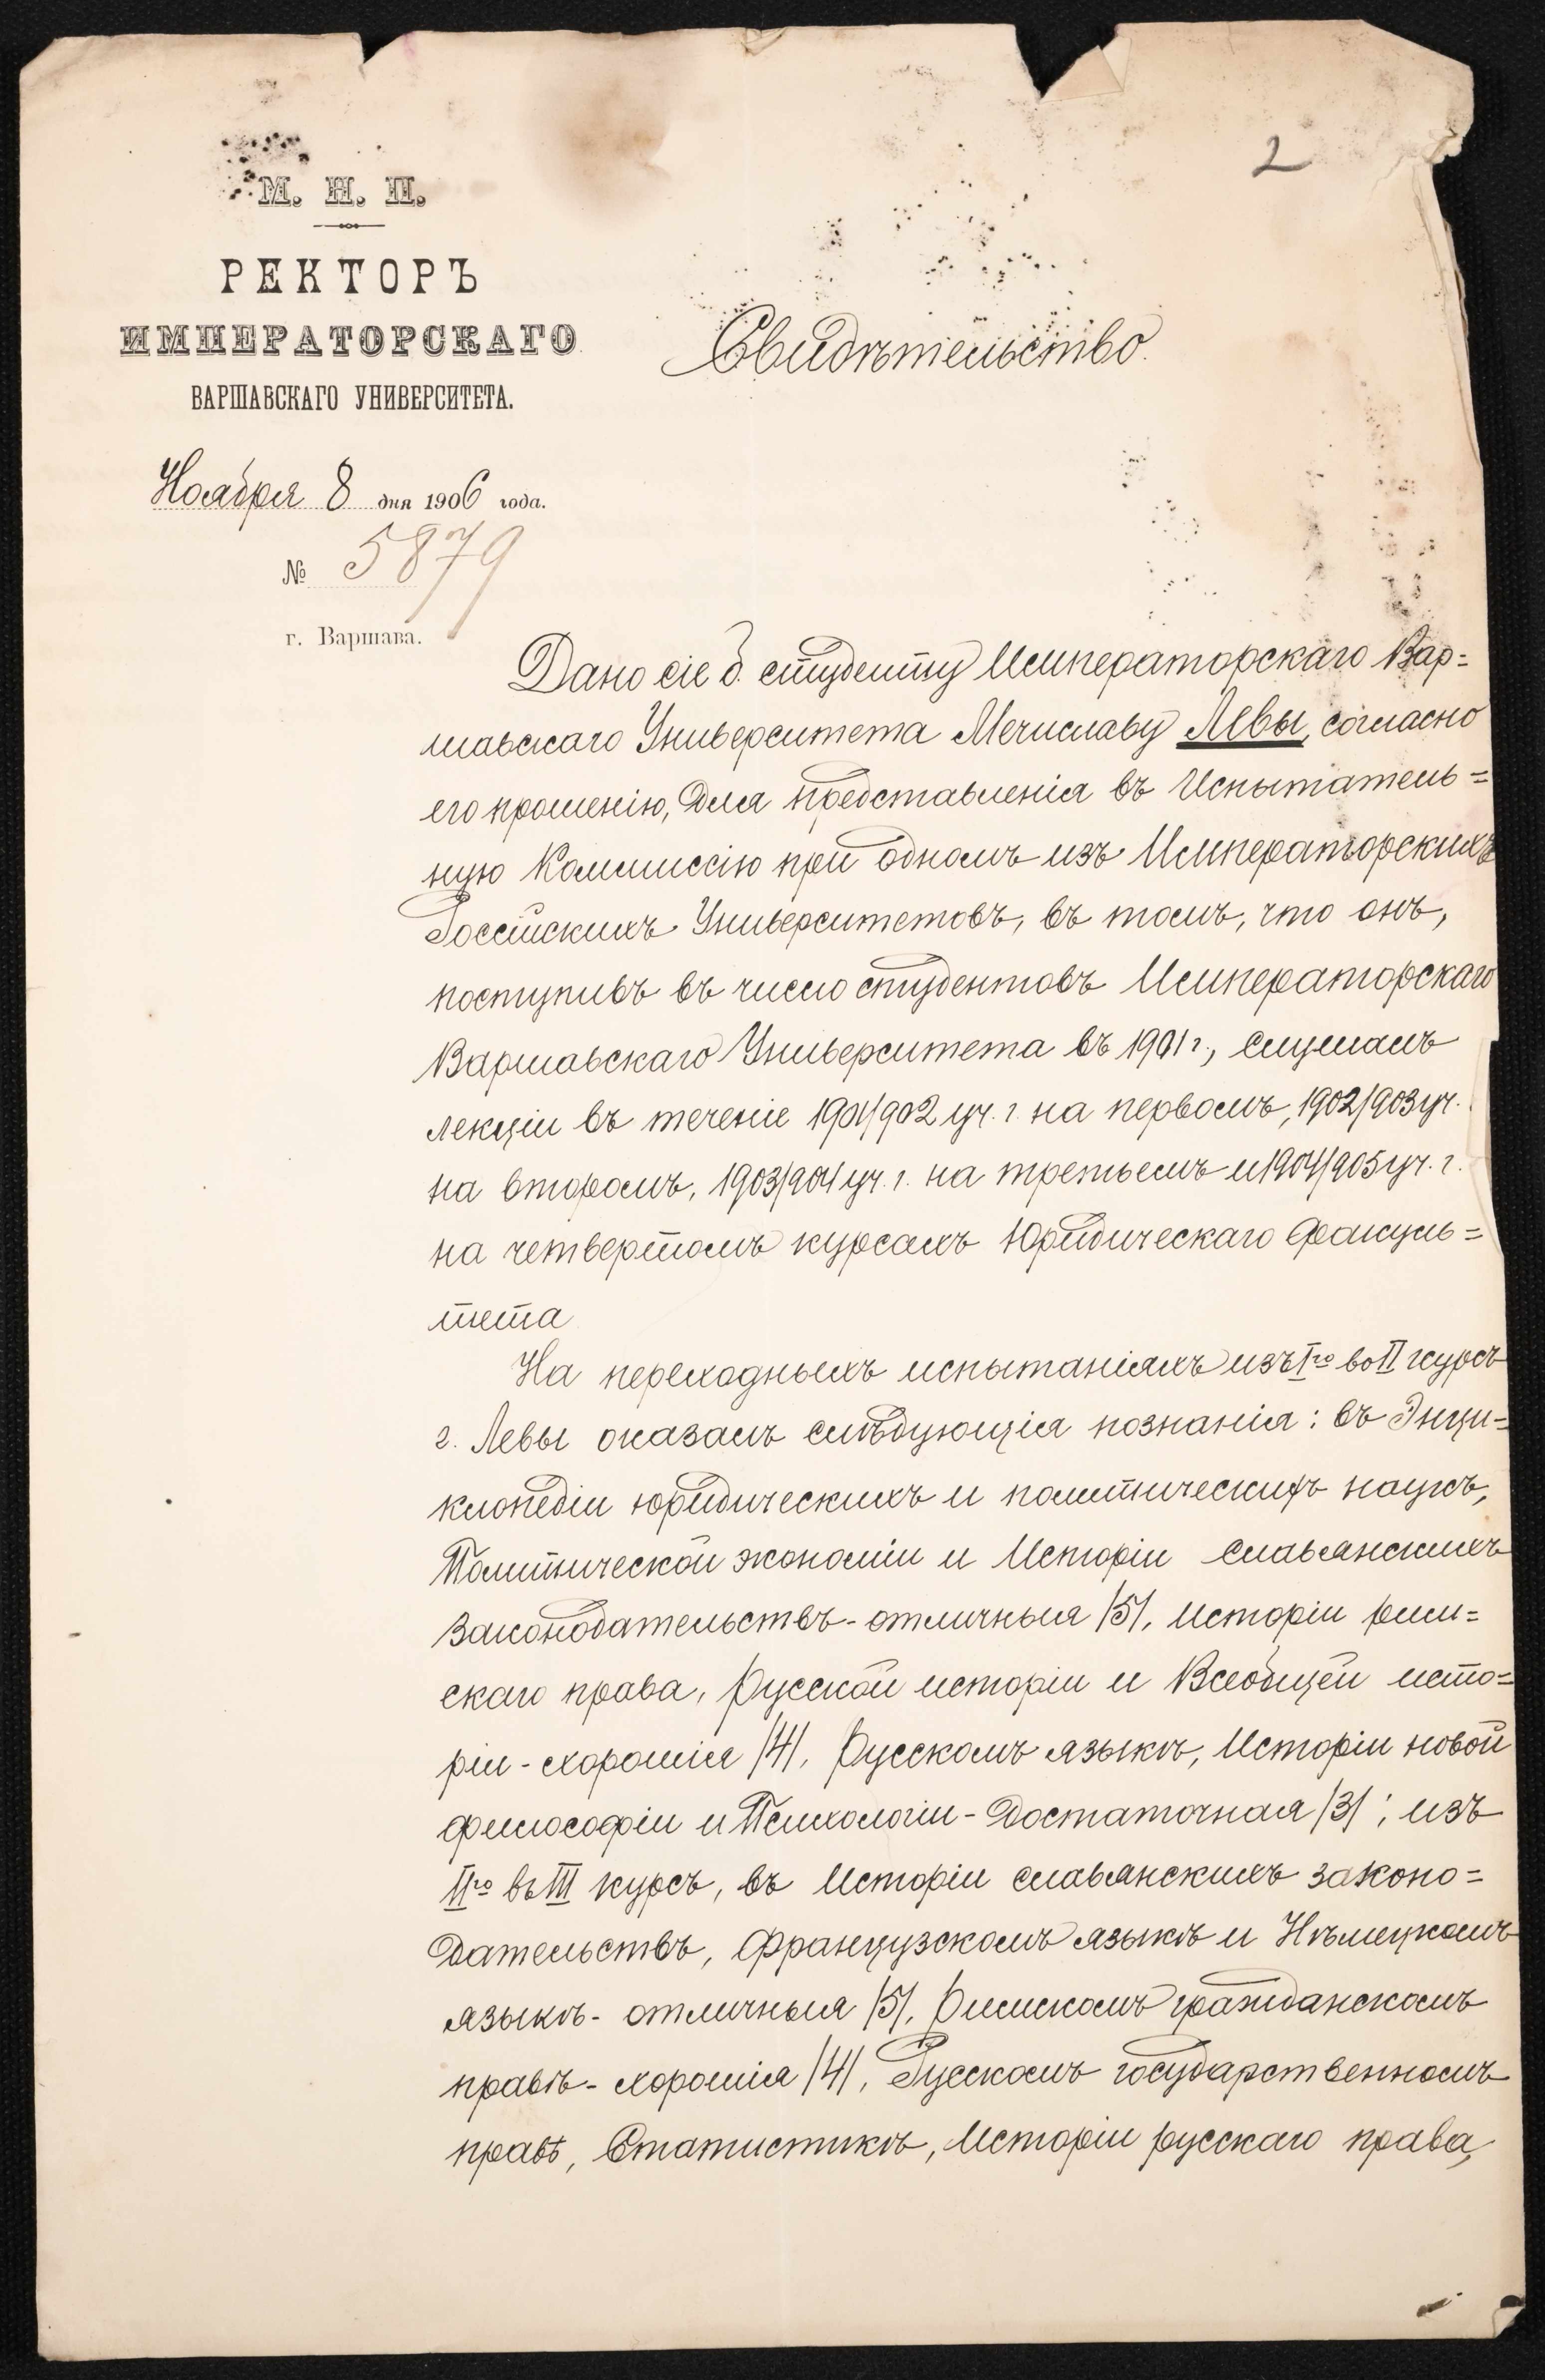 2
М. Н. П.
РЕКТОРЪ
ИМПЕРАТОРСКАГО
ВАРШАВСКАГО УНИВЕРСИТЕТА.
Ноября 8 дня 1906 года.
№ 5879
г. Варшава.
Свидѣтельство.
Дано сіе б. студенту Императорскаго Вар=
шавскаго Университета Мечиславу Левы, согласно
его прошенію, для представленія въ Испытатель=
ную Коммиссію при одномъ изъ Императорскихъ
Россійскихъ Университетовъ, въ томъ, что онъ,
поступивъ въ число студентовъ Императорскаго
Варшавскаго Университета въ 1901 г., слушалъ
лекціи въ теченіе 1901/902 уч. г. на первомъ, 1902/903 уч.
на второмъ, 1903/904 уч. г. на третьемъ и 1904/905 уч. г.
на четвертомъ курсахъ Юридическаго Факуль=
тета
На переходныхъ испытаніяхъ изъ I го во II курсъ
г. Левы оказалъ слѣдующія познанія: въ Энци=
клопедіи юридическихъ и политическихъ наукъ,
Политической экономіи и Исторіи славянскихъ
законодательствъ - отличныя /5/, Исторіи рим=
скаго права, Русской исторіи и Всеобщей исто=
ріи - хорошія /4/, Русскомъ языкѣ, Исторіи новой
философіи и Психологіи - достаточная /3/; изъ
II го въ III курсъ, въ Исторіи славянскихъ законо=
дательствъ, Французскомъ языкѣ и Нѣмецкомъ
языкѣ - отличныя /5/, Римскомъ гражданскомъ
правѣ - хорошія /4/, Русскомъ государственномъ
правѣ, Статистикѣ, Исторіи русскаго права,